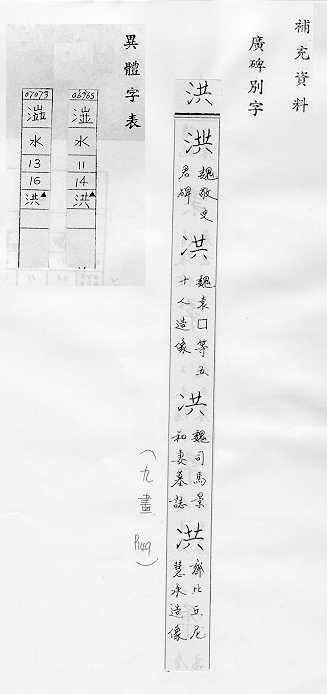 補充資料
廣碑別字
洪
洪
魏敬史
君碑
洪
魏袁口等五
十人造像
洪
魏司馬景
和妻墓誌
洪
齊比丘尼
慧承造像
(九畫 P.149)
異體字表
06965
水
11
14
洪▲
07073
水
13
16
洪▲